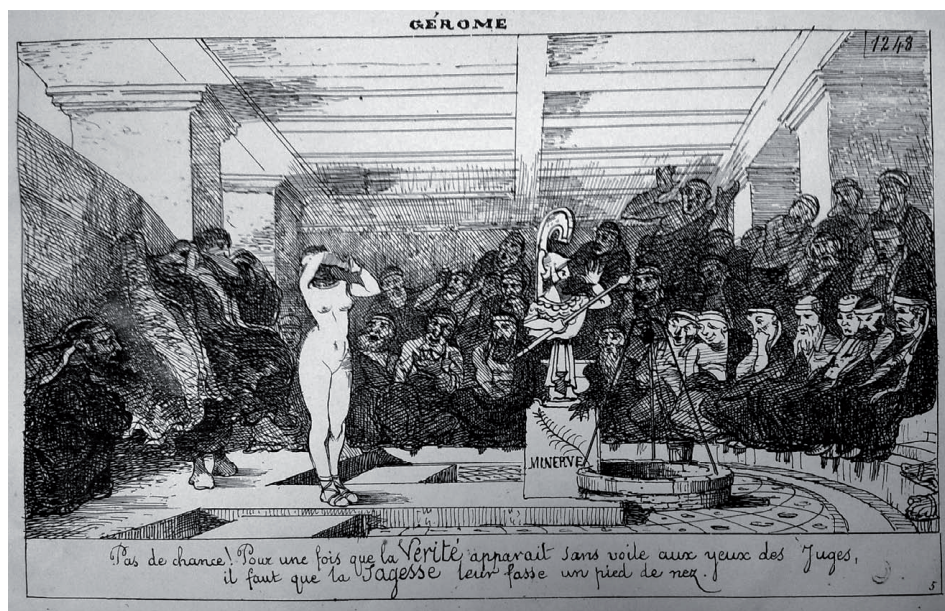 GÉROME
1248
MINERVE
Pas de chance! Pour une fois que la Vérité apparait sans voile aux yeux des Juges,
il faut que la Sagesse leur fasse un pied de nez.
5